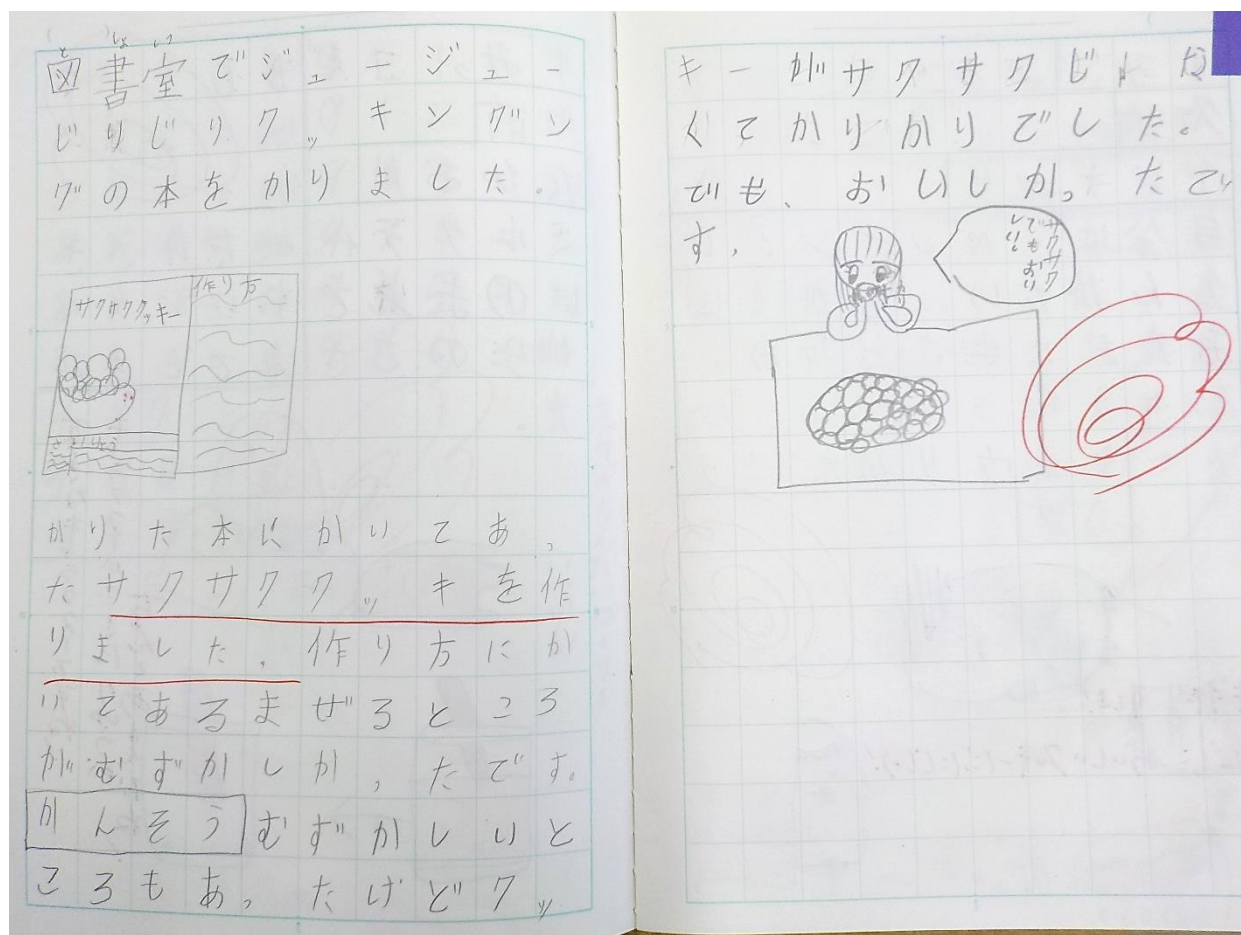 としょしつ
図書室でジュージュー
じりじりクッキングン
グの本をかりました。
サクサククッキー
作り方
ざいりょう
かりた本にかいてあっ
たサクサククッキを作
りました。作り方にか
いてあるまぜるところ
がむずかしかったです。
かんそうむずかしいと
ころもあったけどクッ
キーがサクサクじゃな
くてかりかりでした。
でも、おいしかったで
す。
サクサク
でもおい
しい